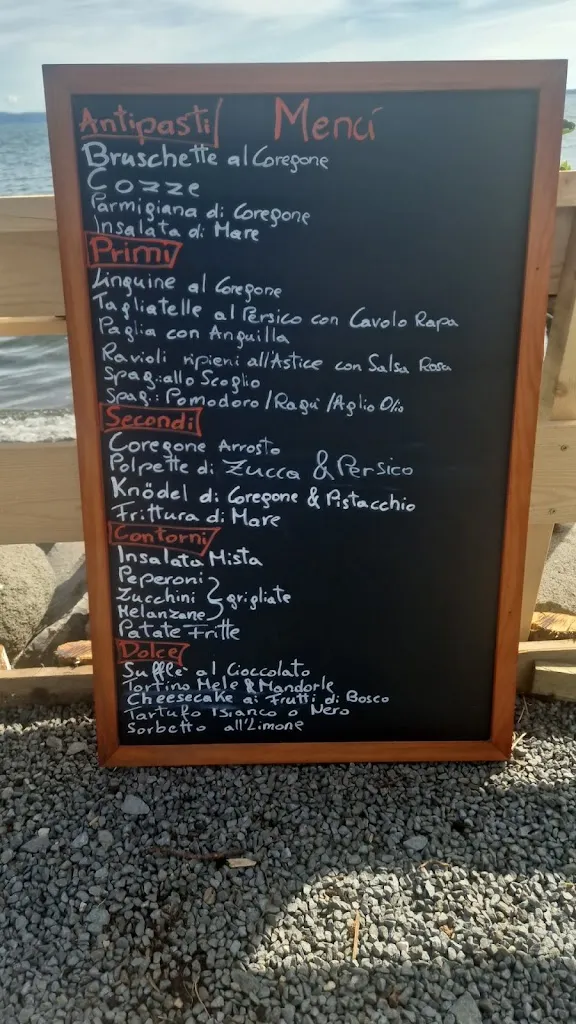 Antipasti Menú
Bruschette al Coregone
Cozze
Parmigiana di Coregone
Insalata di Mare
Primi
Linguine al Coregone
Tagliatelle al Persico con Cavolo Rapa
Paglia con Anguilla
Ravioli ripieni all'Astice con Salsa Rosa
Spag. allo Scoglio
Spag.: Pomodoro / Ragù / Aglio Olio
Secondi
Coregone Arrosto
Polpette di Zucca & Persico
Knödel di Coregone & Pistacchio
Frittura di Mare
Contorni
Insalata Mista
Peperoni
Zucchini } grigliate
Melanzane
Patate Fritte
Dolce
Sufflè al Cioccolato
Tortino Mele & Mandorle
Cheesecake ai Frutti di Bosco
Tartufo Bianco o Nero
Sorbetto all'Limone